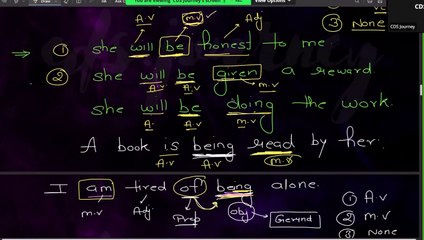 You are viewing CDS Journey's screen View Options
CDS Journey
③ None
A.V m.v Adj
⇒ ① she will be honest to me.
② she will be given a reward
A.V A.V m.v
she will be doing the work.
A.V A.V m.v
A book is being read by her.
A.V A.V m.v
I am tired of being alone.
m.v Adj Prep obj Gerund
① A.V
② m.v
③ None